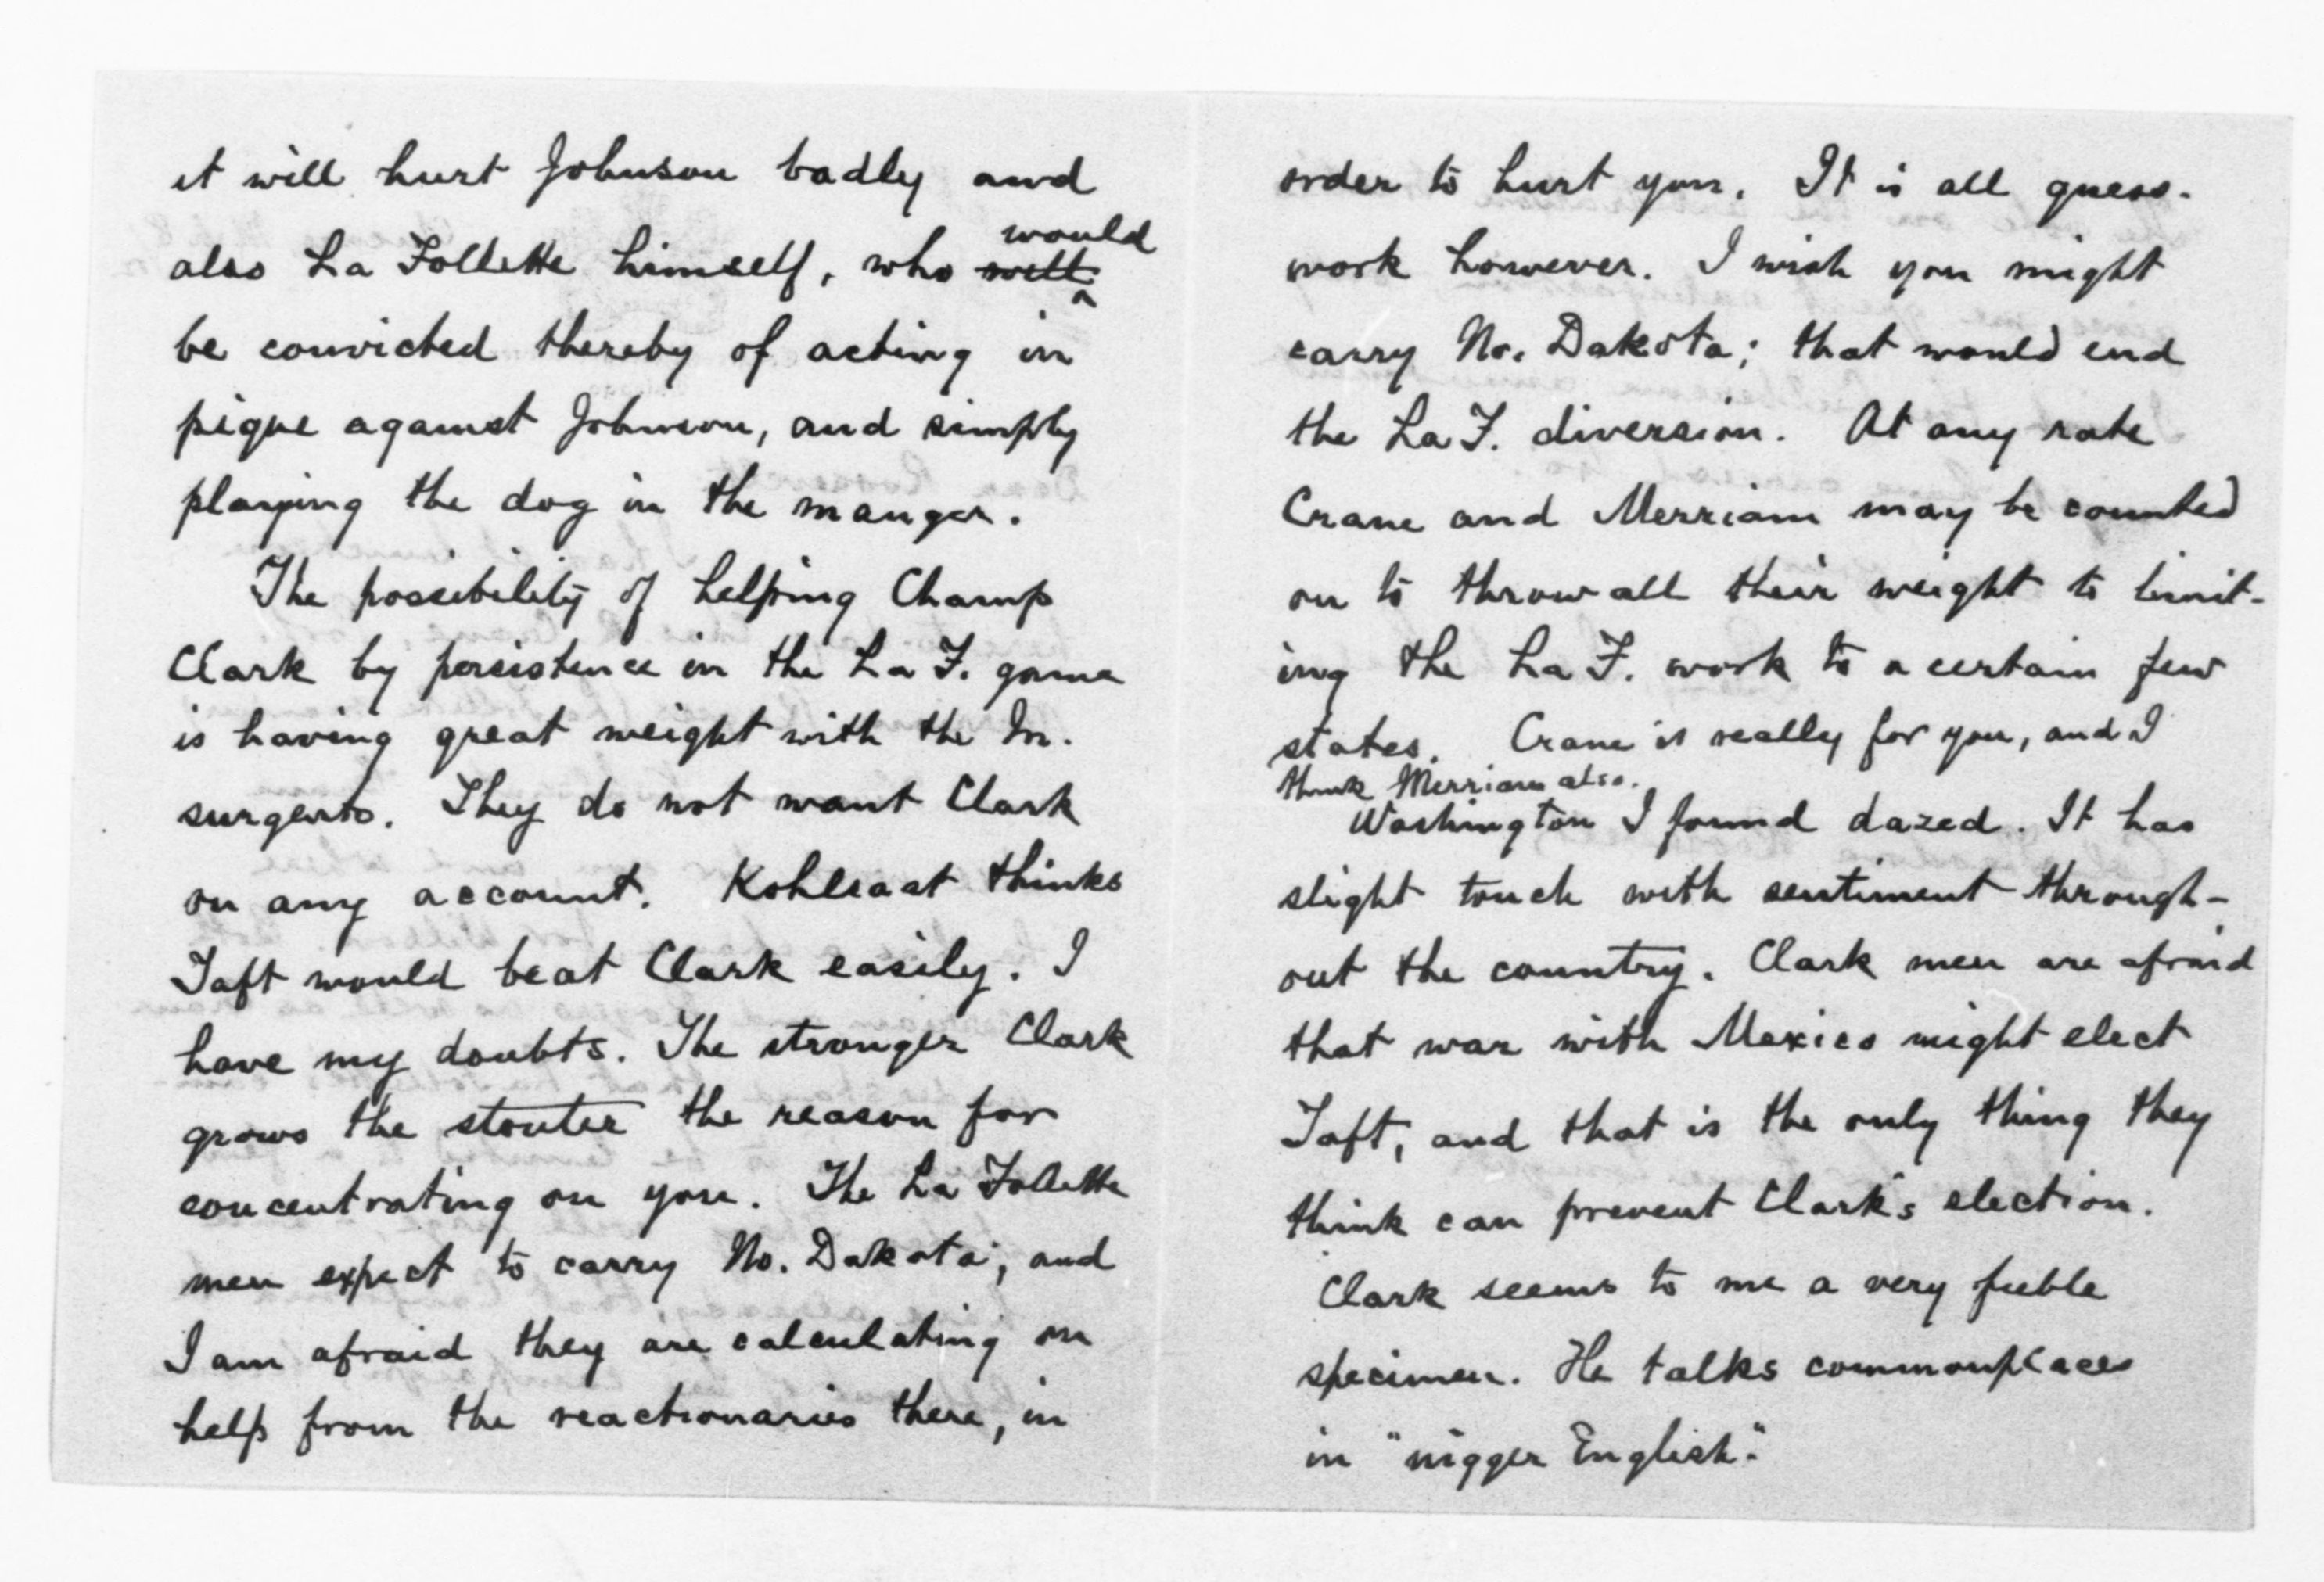 it will hurt Johnson badly and
would
also La Follette himself, who will
be convicted thereby of acting in
pique against Johnson, and simply
playing the dog in the manger.
The possibility of helping Champ
Clark by persistence in the La F. game
is having great weight with the In-
surgents. They do not want Clark
on any account. Kohlsaat thinks
Taft would beat Clark easily. I
have my doubts. The stronger Clark
grows the stouter the reason for
concentrating on you. The La Follette
men expect to carry No. Dakota; and
I am afraid they are calculating on
help from the reactionaries there, in
order to hurt you. It is all guess-
work however. I wish you might
carry No. Dakota; that would end
the La F. diversion. At any rate
Crane and Merriam may be counted
on to throw all their weight to limit-
ing the La F. work to a certain few
states. Crane is really for you, and I
think Merriam also.
Washington I found dazed. It has
slight touch with sentiment through-
out the country. Clark men are afraid
that war with Mexico might elect
Taft, and that is the only thing they
think can prevent Clark's election.
Clark seems to me a very feeble
specimen. He talks commonplaces
in "nigger English".